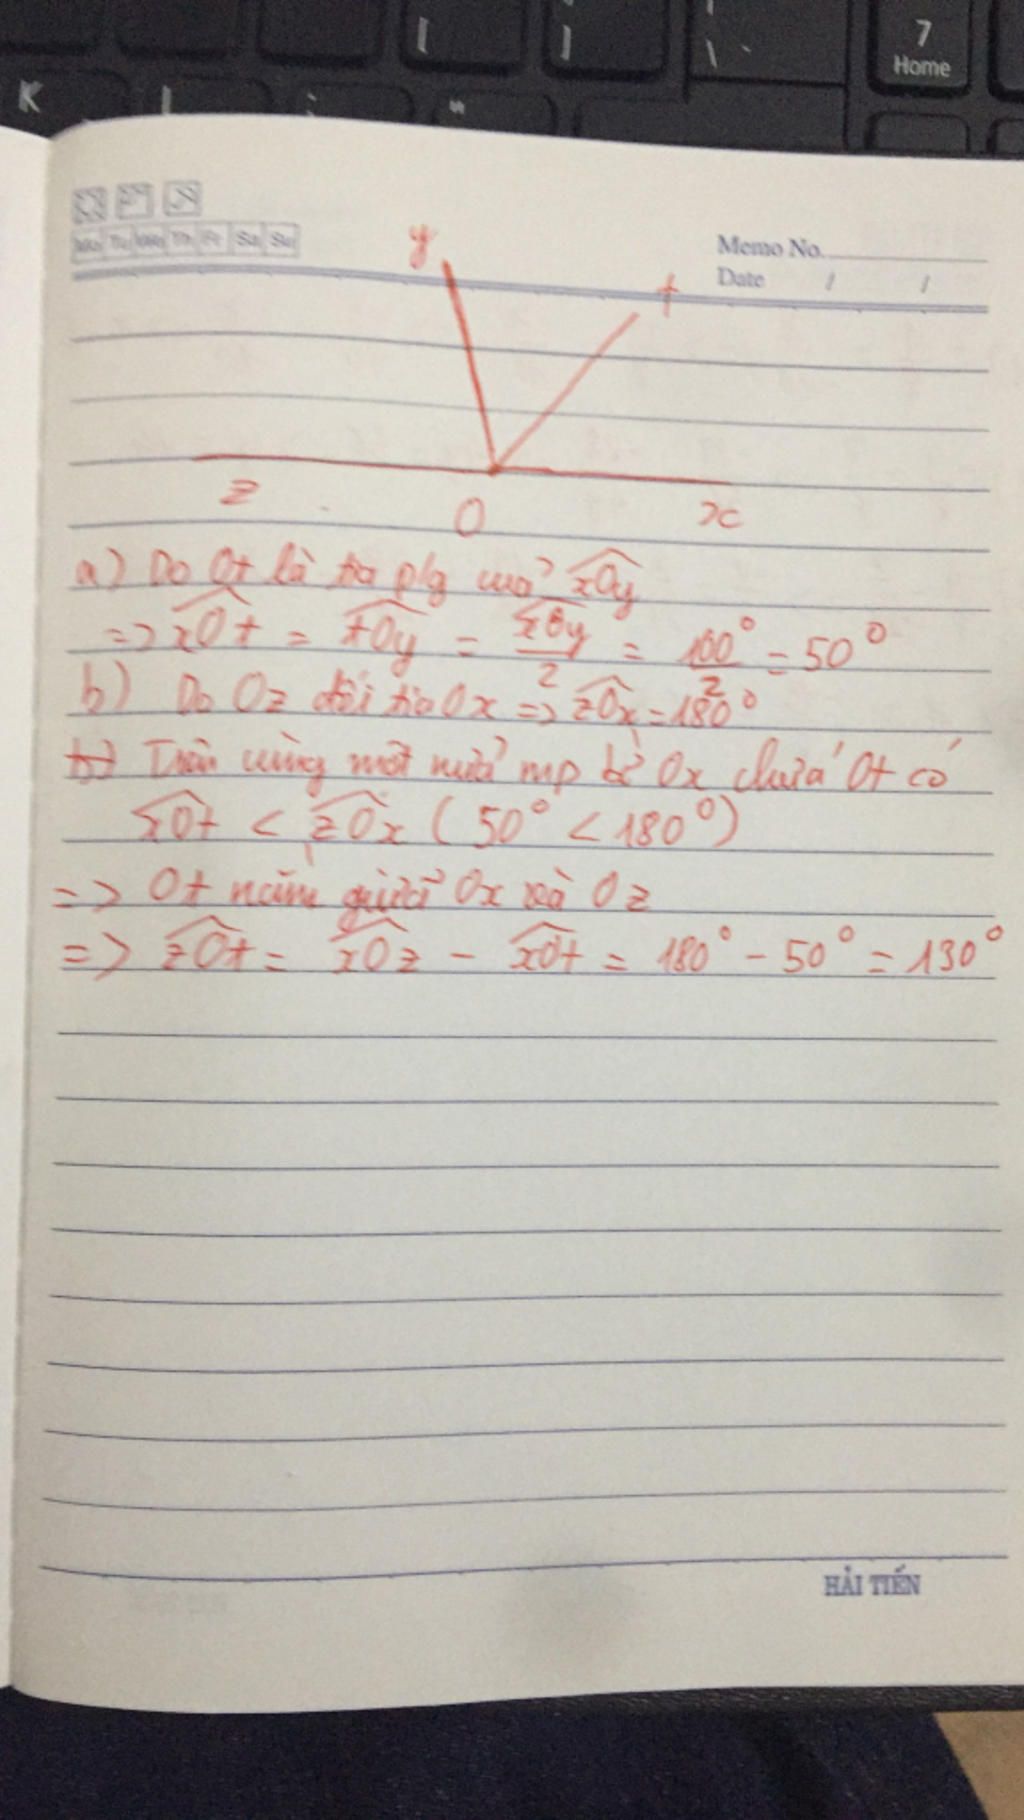 K
[
]
\
7
Home
Mo Tu We Th Fr Sa Su
Memo No.
Date / /
y
t
z
O
x
a) Do Ot là tia p/g của xOy
=> xOt = tOy = xOy/2 = 100°/2 = 50°
b) Do Oz đối tia Ox => zOx = 180°
Trên cùng một nửa mp bờ Ox chứa Ot có
xOt < zOx (50° < 180°)
=> Ot nằm giữa Ox và Oz
=> zOt = xOz - xOt = 180° - 50° = 130°
HẢI TIẾN